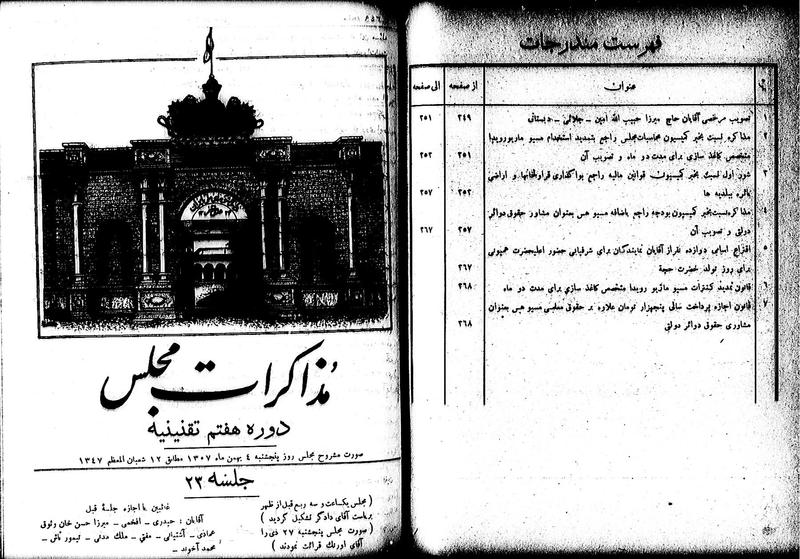 فهرست مندرجات
عنوان
از صفحه
الی صفحه
۱ تصویب مرخصی آقایان حاج میرزا حبیب الله امین - جلائی - دبستانی ۲۴۹ ۲۵۱
۲ مذاکره نسبت بخبر کمیسیون محاسبات مجلس راجع بتمدید استخدام مسیو ماریو رویدا
متخصص کاغذ سازی برای مدت دو ماه و تصویب آن ۲۵۱ ۲۵۲
۳ شور اول نسبت بخبر کمیسیون قوانین مالیه راجع بواگذاری قراولخانها و اراضی
بائره ببلدیه ها ۲۵۲ ۲۵۷
۴ مذاکره نسبت بخبر کمیسیون بودجه راجع باضافه مسیو هس بعنوان مشاور حقوق دوائر
دولتی و تصویب آن ۲۵۷ ۲۶۷
۵ اقتراع اسامی دوازده نفر از آقایان نمایندگان برای شرفیابی حضور اعلیحضرت همیونی
برای روز مولد حضرت حجة ۲۶۷
۶ قانون تمدید کنترات مسیو ماریو رویدا متخصص کاغذ سازی برای مدت دو ماه ۲۶۸
۷ قانون اجازه پرداخت سالی پنجهزار تومان علاوه بر حقوق معلمی مسیو هس بعنوان
مشاوری حقوق دوائر دولتی ۲۶۸
مذاکرات مجلس
دوره هفتم تقنینیه
صورت مشروح مجلس روز پنجشنبه ۴ بهمن ماه ۱۳۰۷ مطابق ۱۲ شعبان المعظم ۱۳۴۷
جلسه ۲۳
( مجلس یکساعت و سه ربع قبل از ظهر
بریاست آقای دادگر تشکیل گردید )
( صورت مجلس پنجشنبه ۲۷ دی را
آقای اورنگ قرائت نمودند )
غائبین با اجازه جلسه قبل
آقایان : حیدری - افخمی - میرزا حسن خان وثوق
عمادی - آشتیانی - مفتی - ملک مدنی - تیمور تاش -
محمد آخوند -